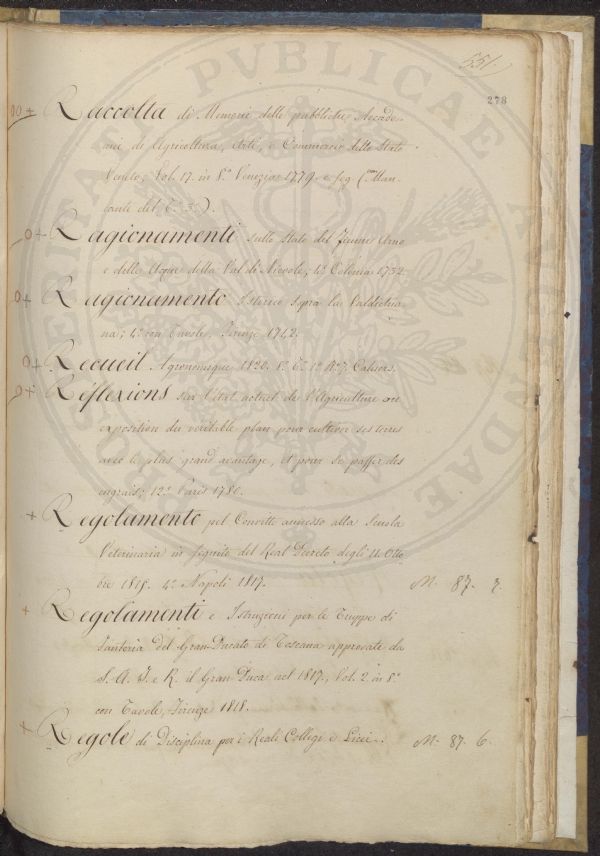 551.
278
Raccolta di Memorie delle pubbliche Accade-
mie di Agricoltura, Arti, e Commercio dello Stato
Veneto; Vol. 17. in 8.° Venezia 1779. e seg. (Man-
cante del T.° 3.°).
Ragionamenti sullo Stato del Fiume Arno
e delle Acque della Val di Nievole; 4.° Colonia 1732.
Ragionamento Istorico sopra la Valdichia
na; 4.° con Tavole. Firenze 1742.
Recueil Agronomique 1820. 8.° T.° 1.° N.° 7. Cahiers.
Réflexions sur l'état actuel de l'Agriculture ou
exposition du véritable plan pour cultiver ses terres
avec le plus grand avantage, et pour se passer des
engrais; 12.° Paris 1780.
Regolamento pel Convitto annesso alla Scuola
Veterinaria in seguito del Real Decreto degli 11. Otto
bre 1815. 4.° Napoli 1817. M. 87. 7.
Regolamenti e Istruzioni per le Truppe di
Fanteria del Gran-Ducato di Toscana approvate da
S. A. I. e R. il Gran Duca nel 1817., Vol. 2 in 8.°
con Tavole, Firenze 1818.
Regole di Disciplina per i Reali Collegi e Licei. M. 87. 6.